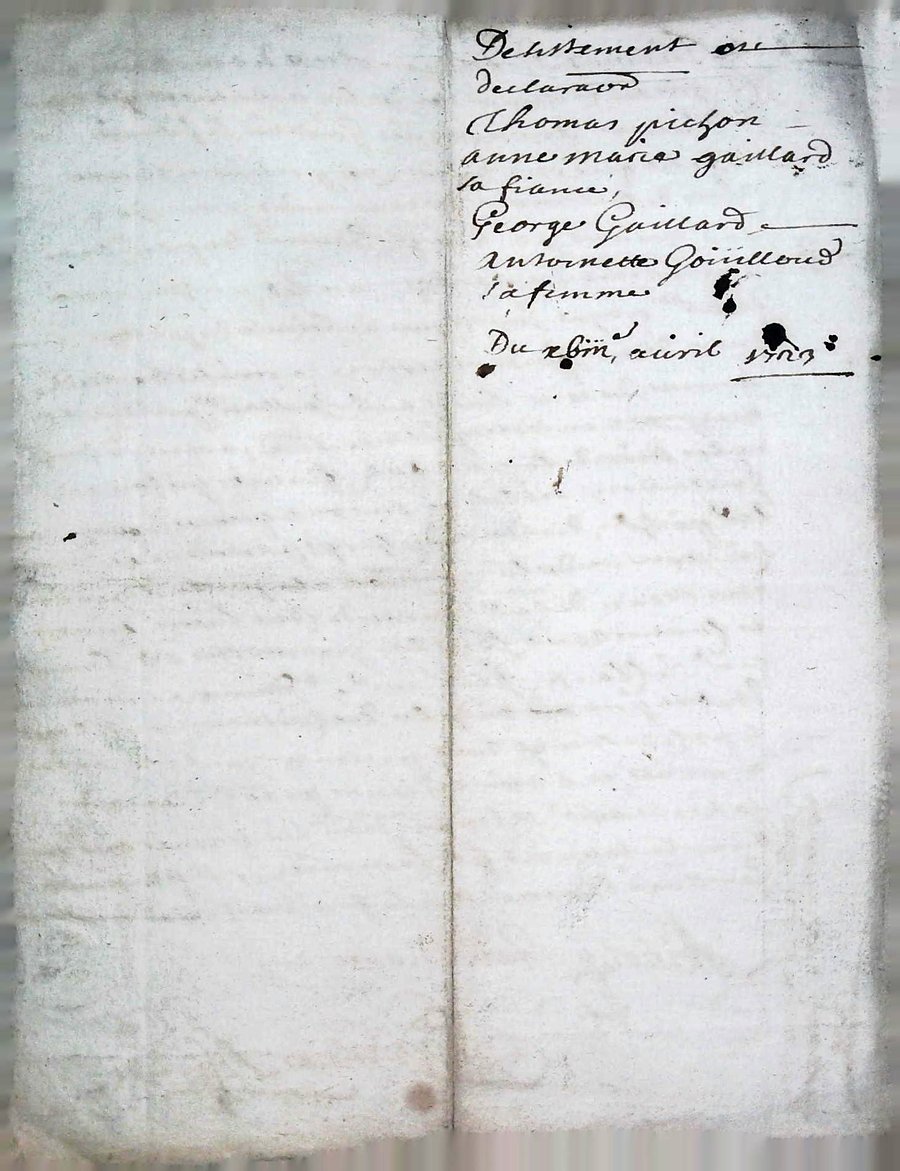 Desistement et
declaraon
Thomas pichon
anne marie gaillard
sa fiance,
George Gaillard
Antoinette Goüilloud
sa femme
Du xbiii, auril 1723